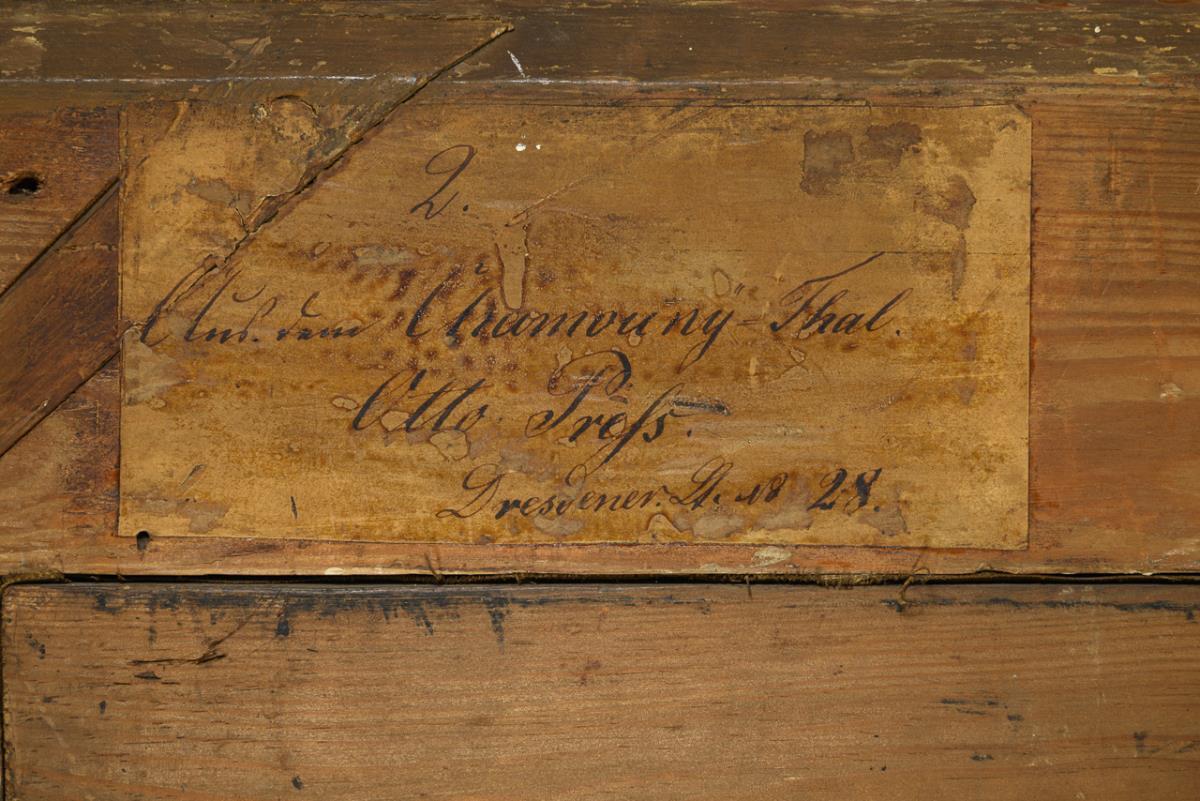 2.
Aus. dem Chamouny-Thal.
Otto Preſs.
Dresdener. St. No 28.